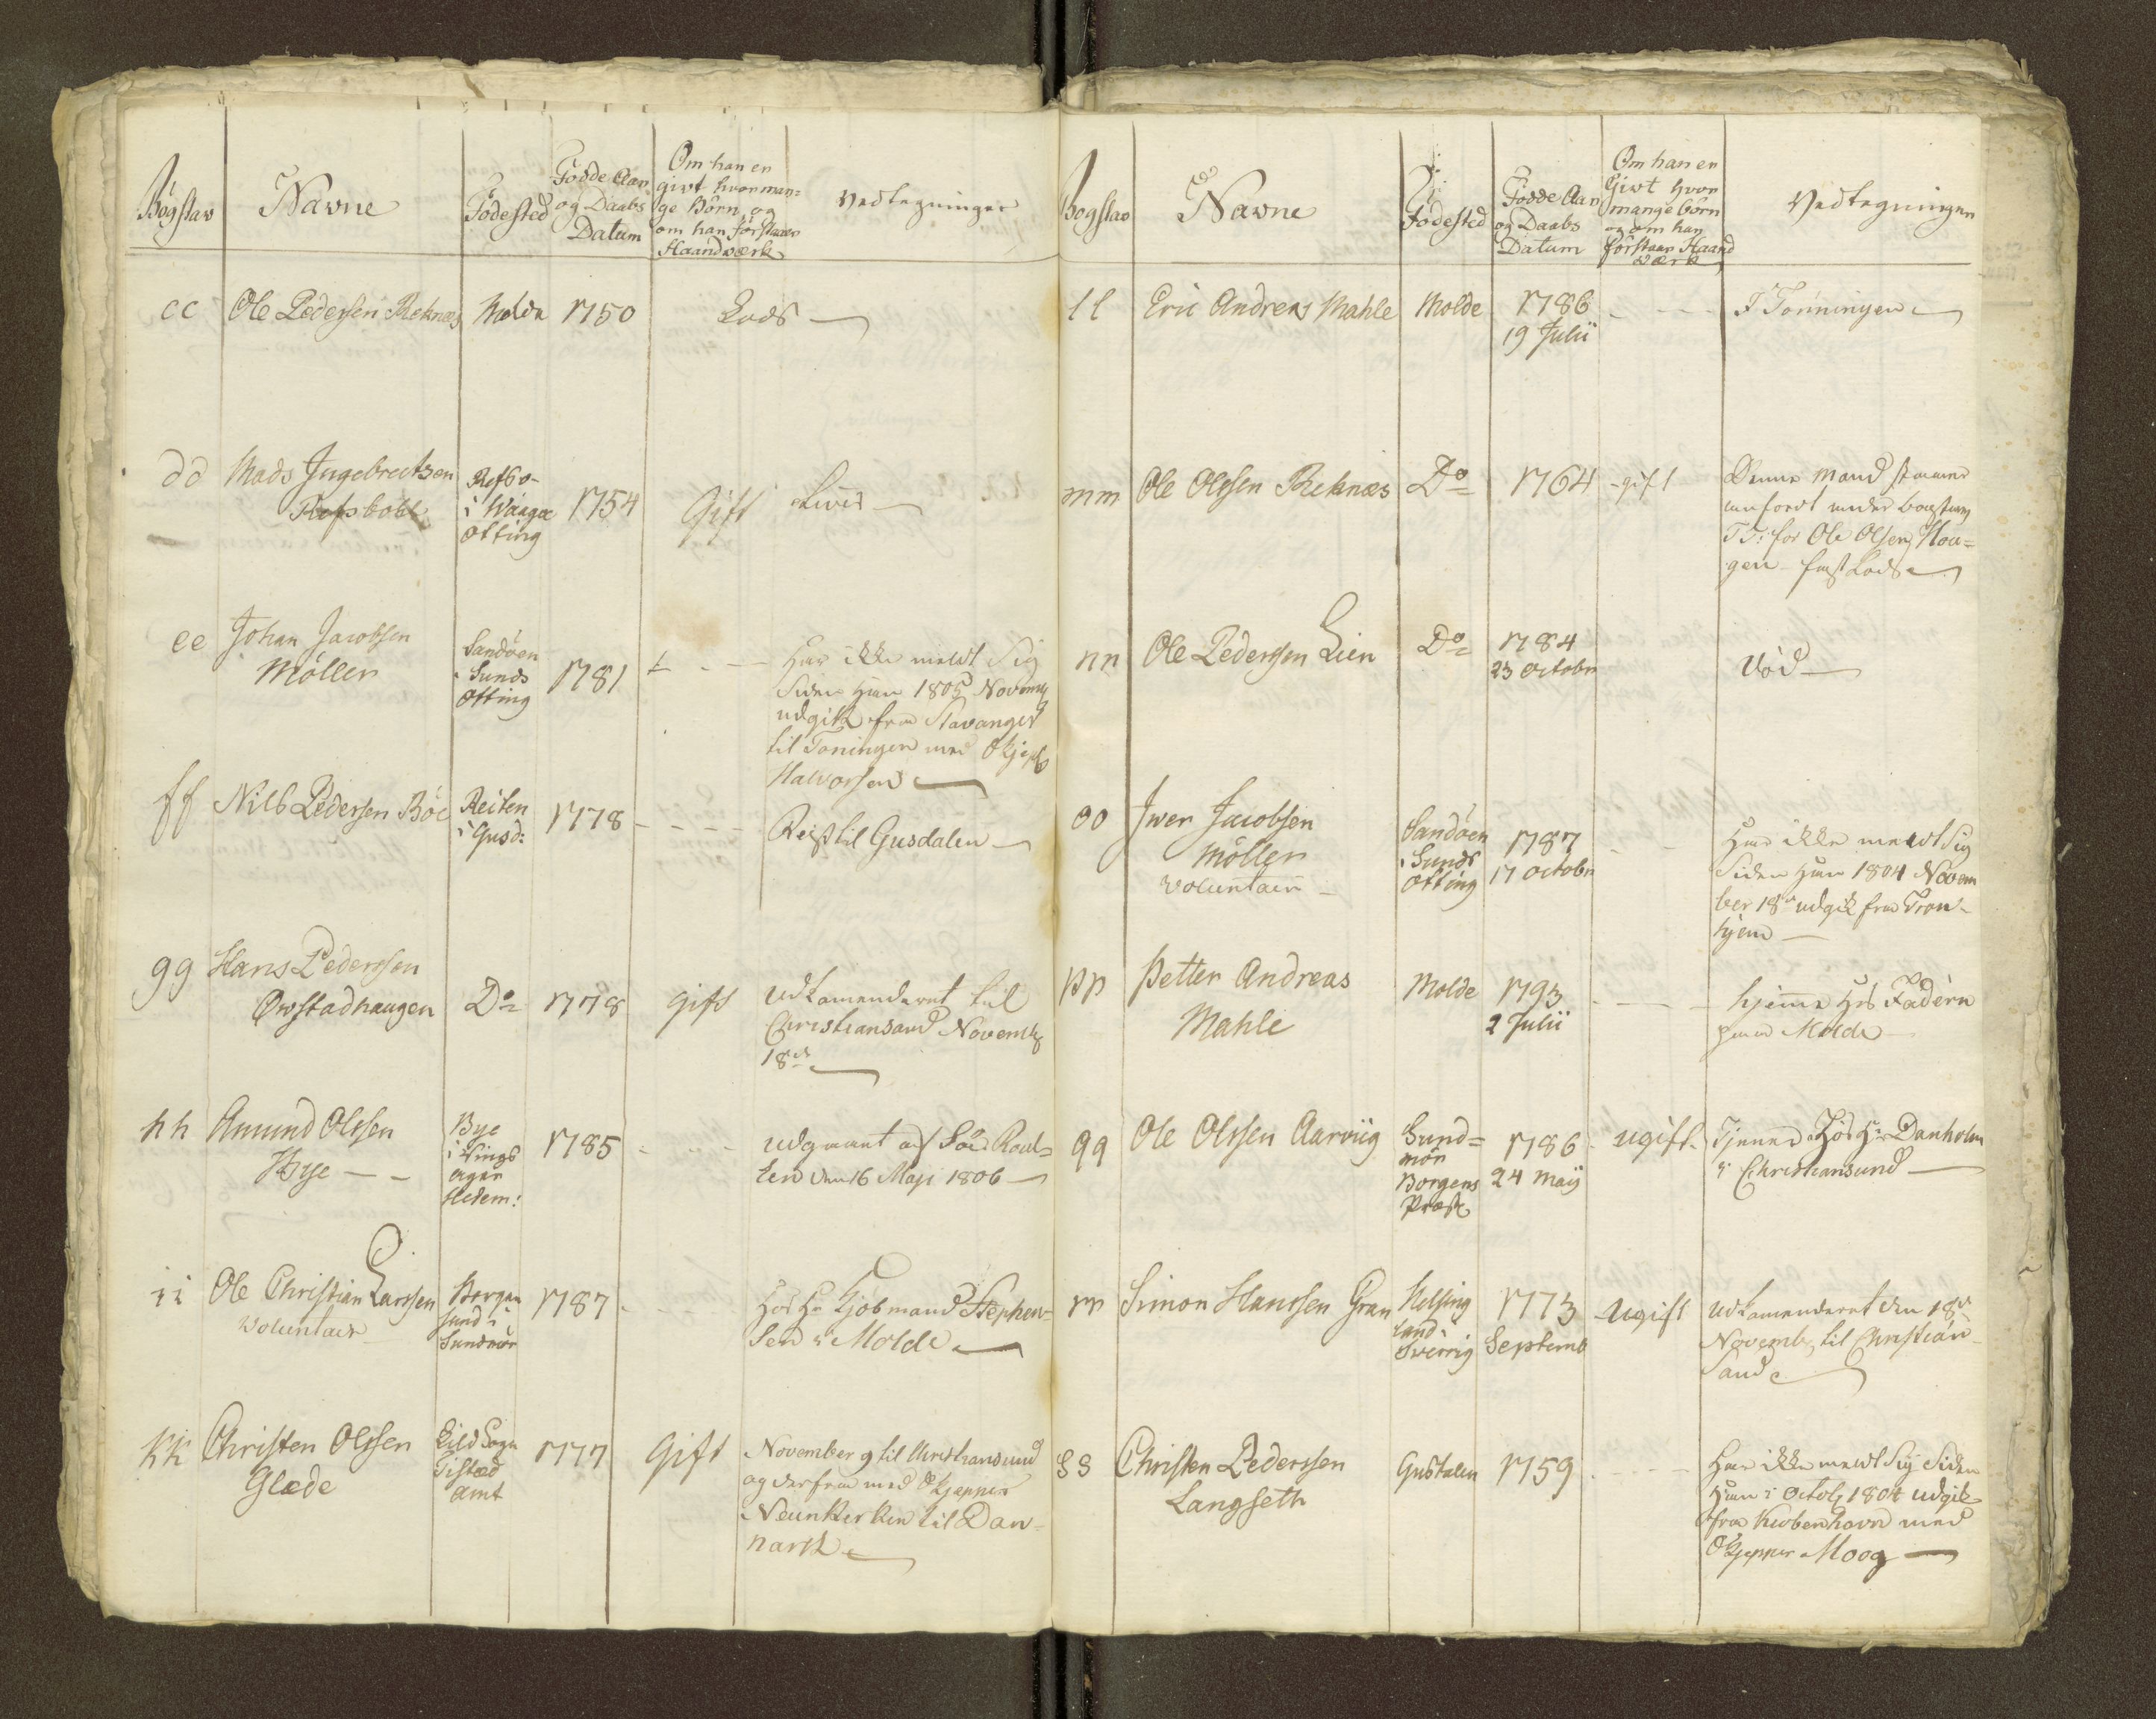 Bogstav
Navne
Fødested
Fødde Aar
og Daabs
Datum
Om han er
givt hvor man=
ge Børn og
om han forstaaer
Haandværk
Vedtegninger
cc Ole Pedersen Reknæs Molde 1750 Lods
dd Mads Ingebrectsen
i Waage 1754 Gift
Otting
ee Johan Jacobsen
Møller
Sandøen
i Sunds
Otting
1781
Har ikke meldt Sig
Siden Han 1805 Novemb
udgik fra Stavanger
til Toningen med Skjep
Halvorsen
ff Nils Pedersen Böe Reiten
i Gusd: 1778
Reist til Gusdalen
gg Hans Pederssen
Orstadhaugen Do 1778 gift
Udkomenderet til
Christiansand Novemb
18de
hh Amund Olssen
Bye
Bye
i Rings
ager
Hedem:
1785
udgaaet af Søe Roul=
len den 16 Maji 1806
ii Ole Christian Larssen
Voluntair
Borgen
sund i
Sundmör
1787
Hos Hr Kjöbmand Stephen=
sen i Molde
kk Christen Olssen
Glæde
Lild Sogn
Tisted
Amt
1777 Gift
November 9 til Christiansund
og derfra med Skjepper
Neunkerken til Dan=
nark
Bogstav
Navne
Fødested
Fødde Aar
og Daabs
Datum
Om han er
Givt hvor
mange børn
og om han
forstaar Haand
værk
Vedtegninger
ll Eric Andreas Mahle Molde 1786
19 Julii
I Tønningen
mm Ole Olssen Reknæs Do 1764 gift
Denne Mand
anført under bogstav
TT: for Ole Olsen Hou=
gen fast Lods
nn Ole Pederssen Lien Do 1784
23 Octobr
Död
oo Iver Jacobsen
Möller
Voluntair
Sandøen
i Sunds
Otting
1787
17 Octobr
Har ikke meldt Sig
Siden Han 1804 Novem
ber 18de udgik fra Tron=
hjem
pp Petter Andreas
Mahle
Molde 1793
2 Julii
hjemme Hos Faderen
paa Molde
qq Ole Olssen Aarviig
Sund=
mör
Borgens
Præst
1786
24 Maij
ugift
Tjener Hos Hr Danholm
i Christiansund
rr Simon Hanssen Gran
Helsing
land i
Sverrig
1773
Septemb
Ugift
Udkomenderet den 18de
Novemb til Christian
Sand
ss Christen Pederssen
Langseth
Gusdalen 1759
Har ikke meldt Sig Siden
Han i Octob 1804 udgik
fra Kiøbenhavn med
Skjepper Moog